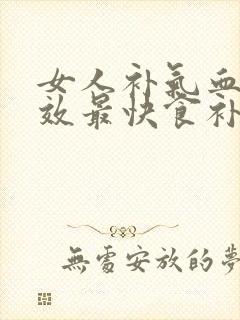 女人补氣血
效最快食补
無處安放的夢